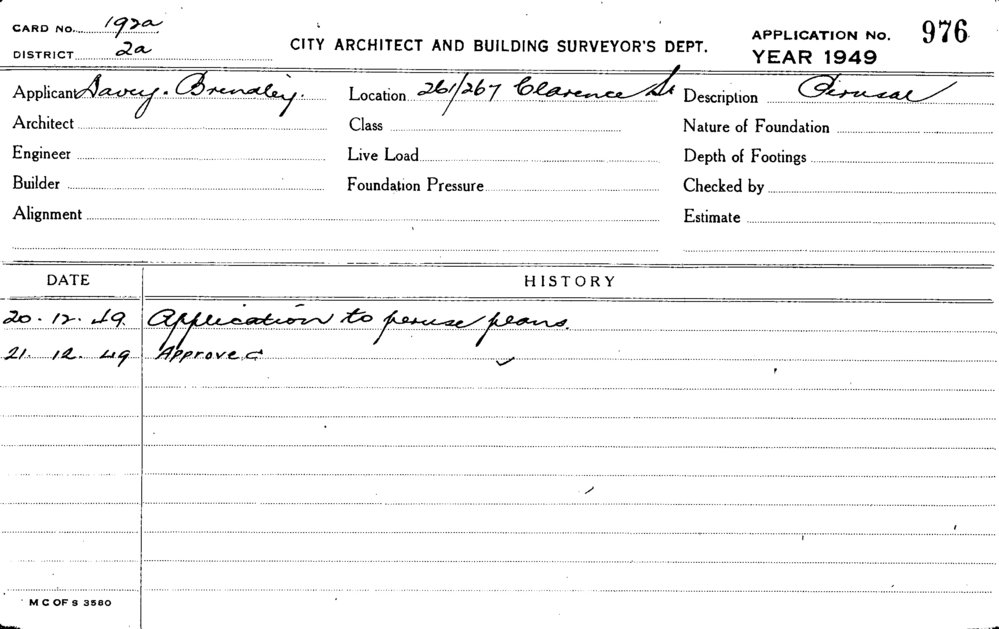 CARD NO. 192a
DISTRICT 2a
CITY ARCHITECT AND BUILDING SURVEYOR'S DEPT.
APPLICATION NO. 976
YEAR 1949
Applicant Davey. Brindley. Location 261/267 Clarence St Description Perusal
Architect Class Nature of Foundation
Engineer Live Load Depth of Footings
Builder Foundation Pressure Checked by
Alignment Estimate
DATE HISTORY
20.12.49. Application to peruse plans.
21.12.49 Approved
M C OF S 3580